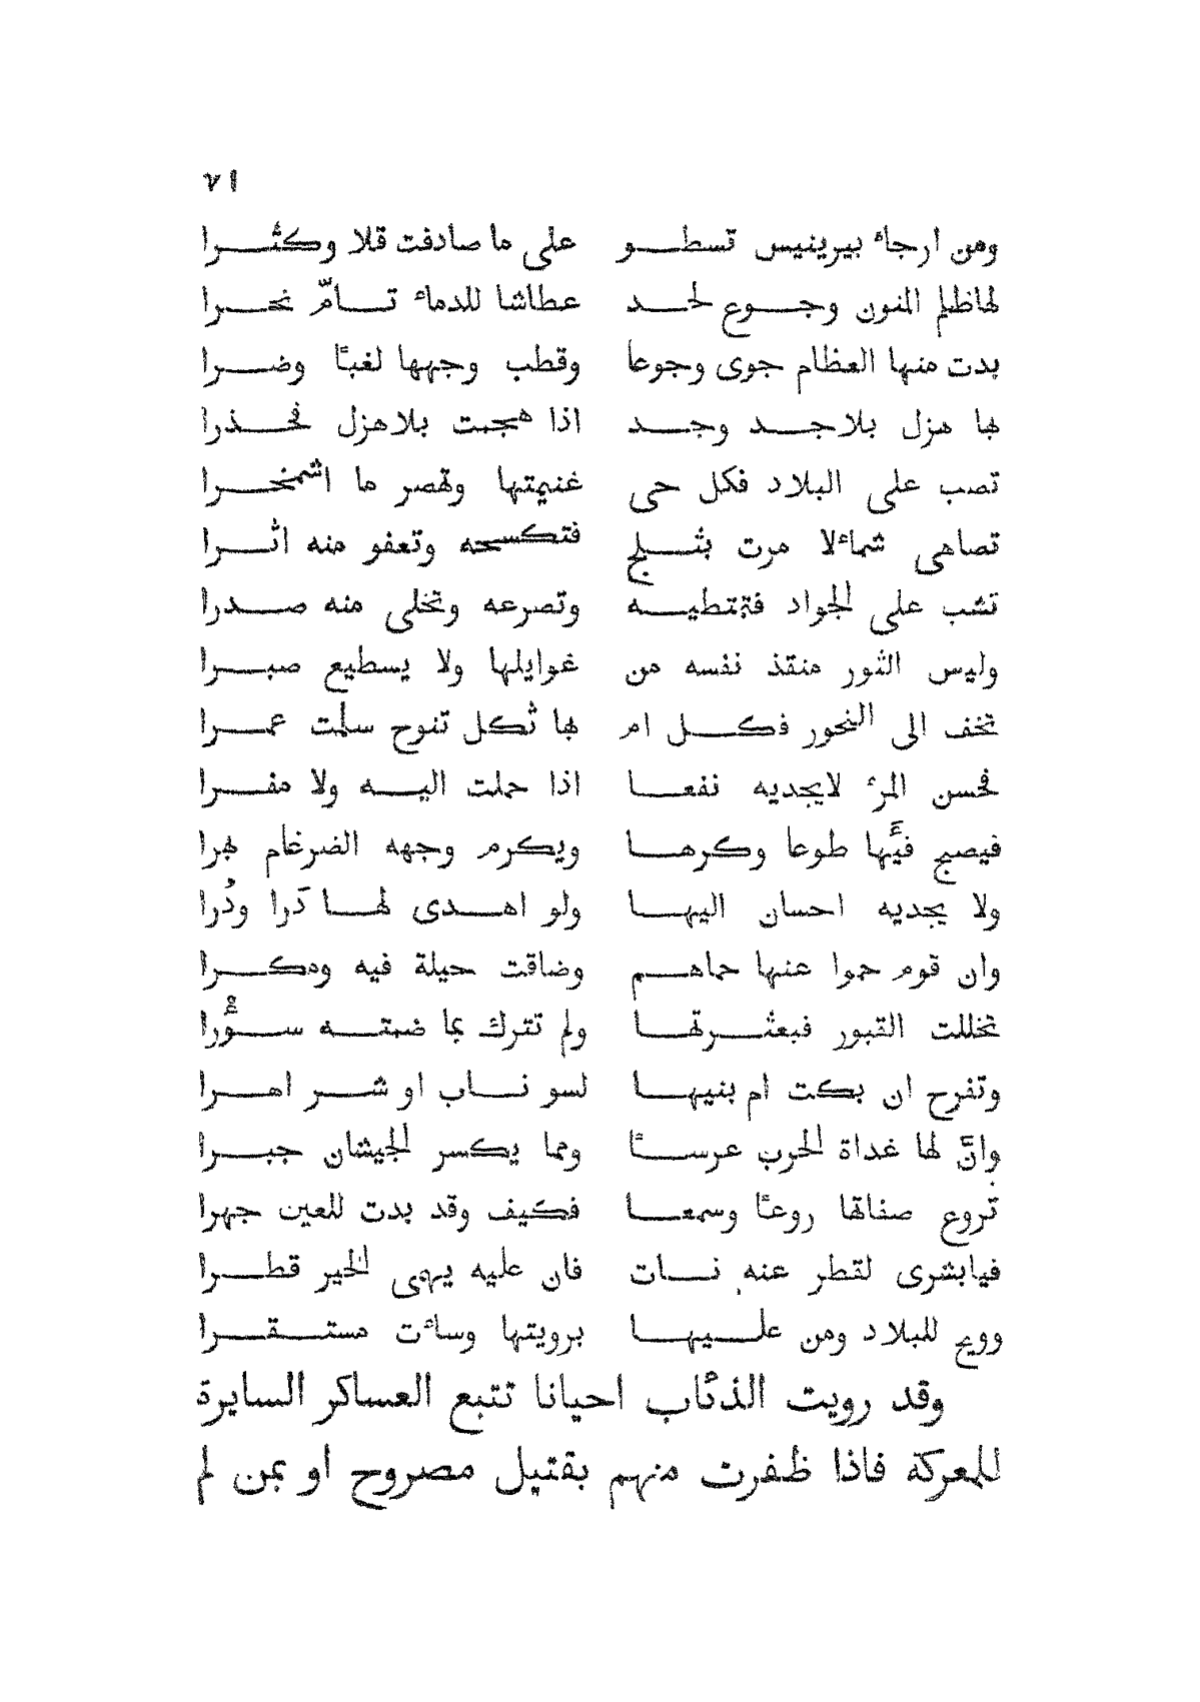 ٧١
ومن ارجاء بيرينيس تسطو على ما صادفت قلا وكثرا
لهاظلم المنون وجوع لحد عطاشا للدماء تامّ نحرا
بدت منها العظام جوى وجوعا وقطب وجهها لغبًا وضرا
لها هزل بلا جد وجد اذا هجمت بلا هزل فحذرا
تصب على البلاد فكل حى غنيمتها وتهصر ما اشمخرا
تصاهى شمائلا مرت بثلج فتكسحه وتعفو منه اثرا
تشب على الجواد فتمتطيه وتصرعه وتخلى منه صدرا
وليس الثور منقذ نفسه من غوايلها ولا يسطيع صبرا
تخف الى النحور فكل ام لها ثكل تنوح سلمت عمرا
فحسن المرء لايجديه نفعا اذا حملت اليه ولا مفرا
فيصبح فيًها طوعا وكرها ويكرم وجهه الضرغام لهرا
ولا يجديه احسان اليها ولو اهدى لها دَرا ودُرا
وان قوم حموا عنها حماهم وضاقت حيلة فيه ومكرا
تخللت القبور فبعثرتها ولم تترك بما ضمته سؤرا
وتفرح ان بكت ام بنيها لسو ناب او شر اهرا
وانّ لها غداة الحرب عرسًا ومما يكسر الجيشان جبرا
تروع صفاتها روعًا وسمعا فكيف وقد بدت للعين جهرا
فيابشرى لقطر عنه نات فان عليه يهمى الخير قطرا
وويح للبلاد ومن عليها برويتها وساءت مستقرا
وقد رويت الذئاب احيانا تتبع العساكر السايرة
للمعركة فاذا ظفرت منهم بقتيل مصروح او بمن لم